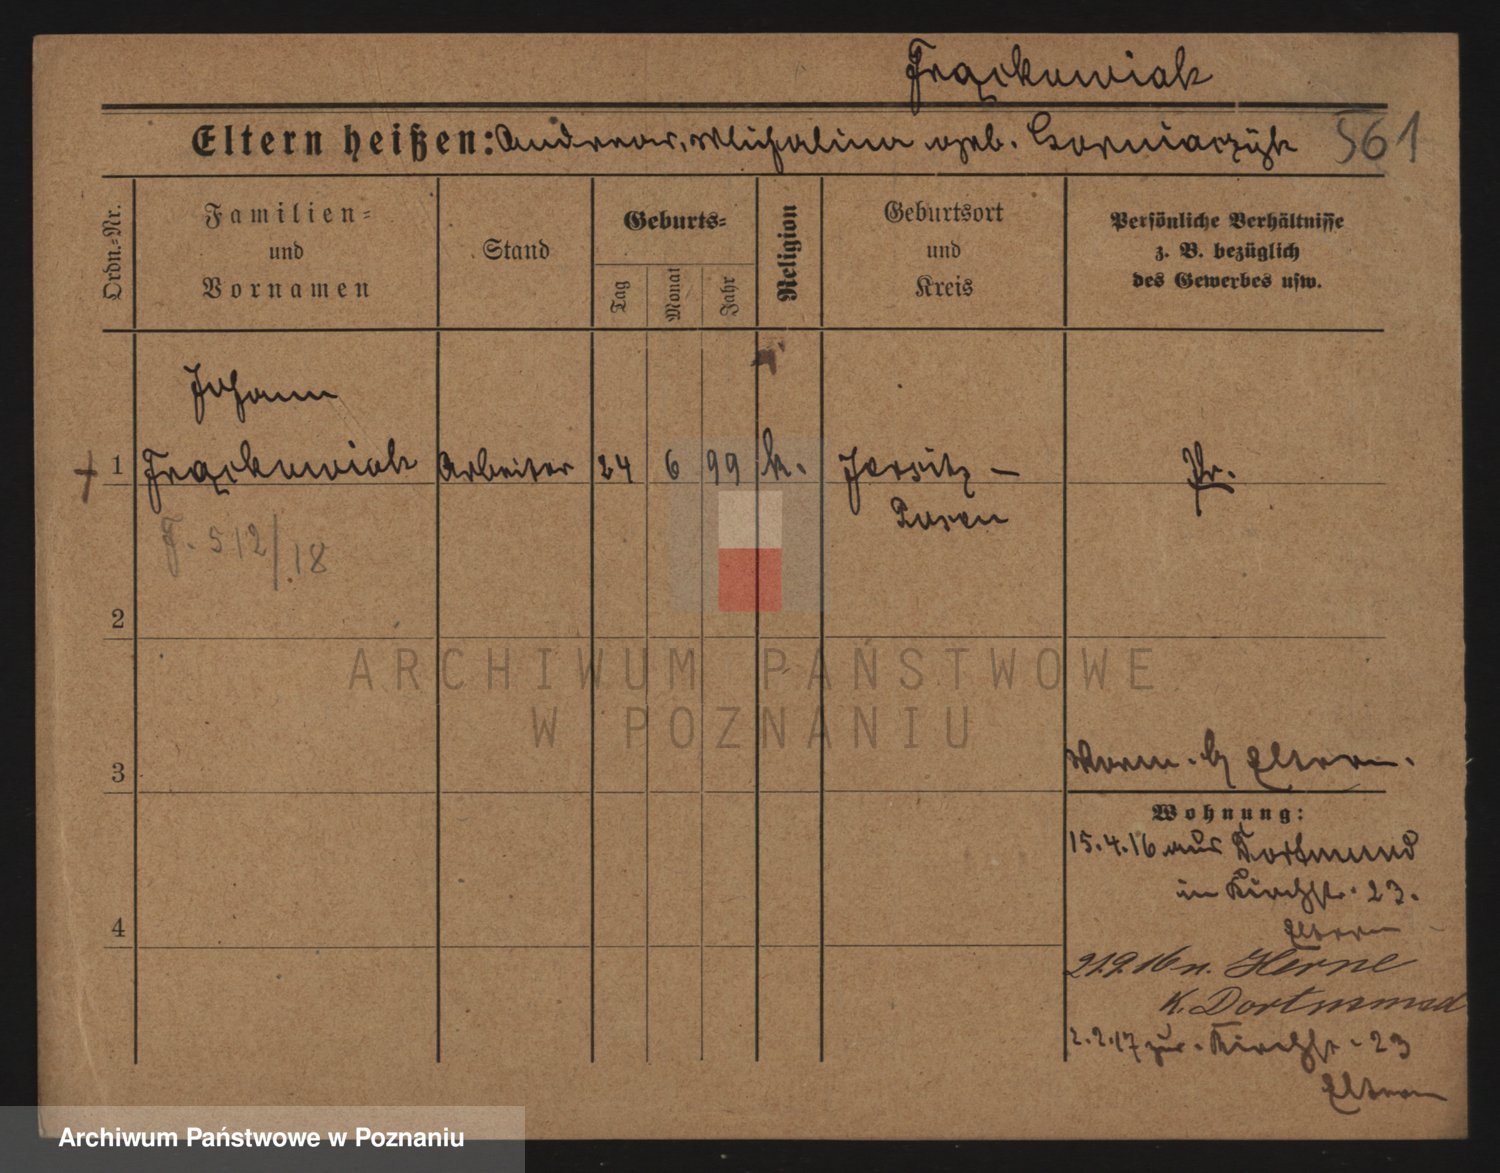 Frąckowiak
Eltern heißen: Andreas, Michalina geb. Gorniaczyk 561
Ordn.-Nr.
Familien-
und
Vornamen
Stand
Geburts-
Tag
Monat
Jahr
Religion
Geburtsort
und
Kreis
Persönliche Verhältnisse
z. B. bezüglich
des Gewerbes usw.
Johann
† 1 Frąckowiak Arbeiter 24 6 99 k. Jersitz - Pr.
Posen
F. 512/18
2
ARCHIWUM PAŃSTWOWE
W POZNANIU
3
Eltern.
Wohnung:
15.4.16 aus Dortmund
in Kirchstr. 23.
Eltern
21.9.16 n. Herne
K. Dortmund
2.2.17 zur. Kirchstr. 23
Eltern
4
Archiwum Państwowe w Poznaniu